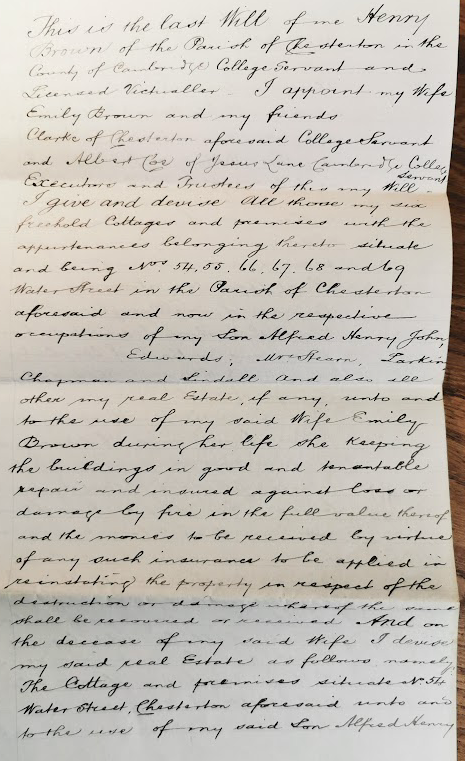 This is the last Will of me Henry
Brown of the Parish of Chesterton in the
County of Cambridge College Servant and
Licensed Victualler - I appoint my Wife
Emily Brown and my friends
Clarke of Chesterton aforesaid College Servant
and Albert Coe of Jesus Lane Cambridge College
Servant
Executors and Trustees of this my Will -
I give and devise All those my six
freehold Cottages and premises with the
appurtenances belonging thereto situate
and being Nos. 54, 55, 66, 67, 68 and 69
Water Street in the Parish of Chesterton
aforesaid and now in the respective
occupations of my Son Alfred Henry, John,
Edwards, Mrs Hearn, Parkin
Chapman and And also all
other my real Estate, if any, unto and
to the use of my said Wife Emily
Brown during her life she keeping
the buildings in good and tenantable
repair and insured against loss or
damage by fire in the full value thereof
and the monies to be received by virtue
of any such insurance to be applied in
reinstating the property in respect of the
destruction or damage whereof the same
shall be recovered or received And on
the decease of my said Wife I devise
my said real Estate as follows namely:
The Cottage and premises situate No. 54
Water Street, Chesterton aforesaid unto and
to the use of my said Son Alfred Henry